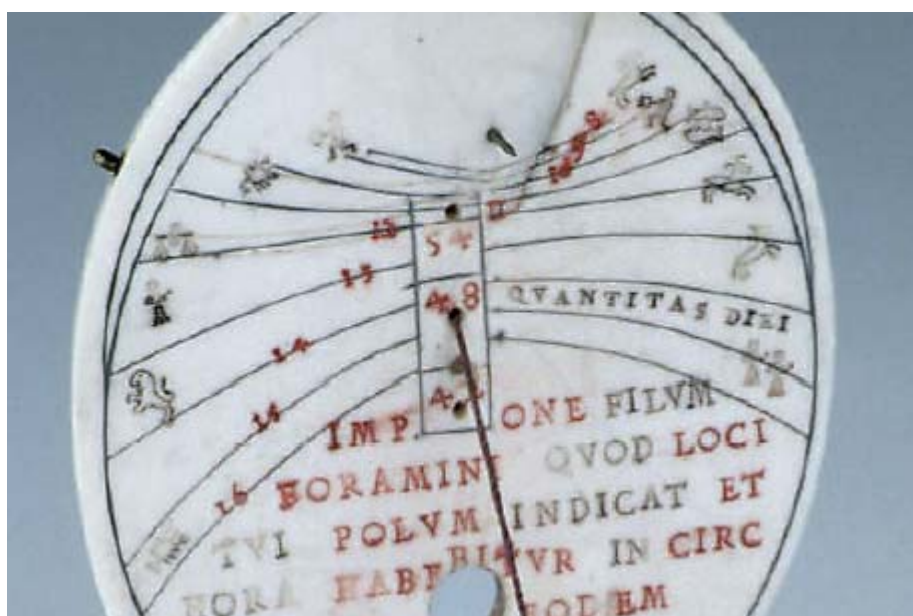 8
9
10
12 11
54
13
48 QVANTITAS DIEI
14
42
IMPONE FILVM
FORAMINI QVOD LOCI
16
TVI POLVM INDICAT ET
HORA HABEBITVR IN CIRC
EODEM